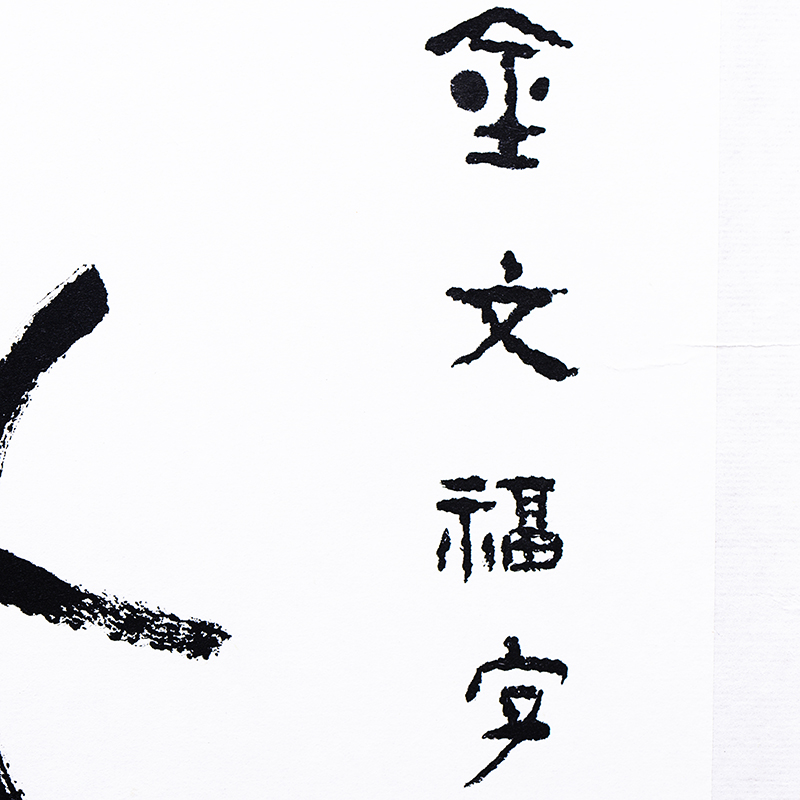 金文福字